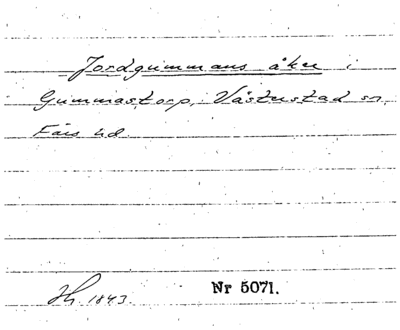 Jordgummans åker i
Gummastorp, Västerstad sn,
Färs hd.
Hh. 1843. Nr 5071.